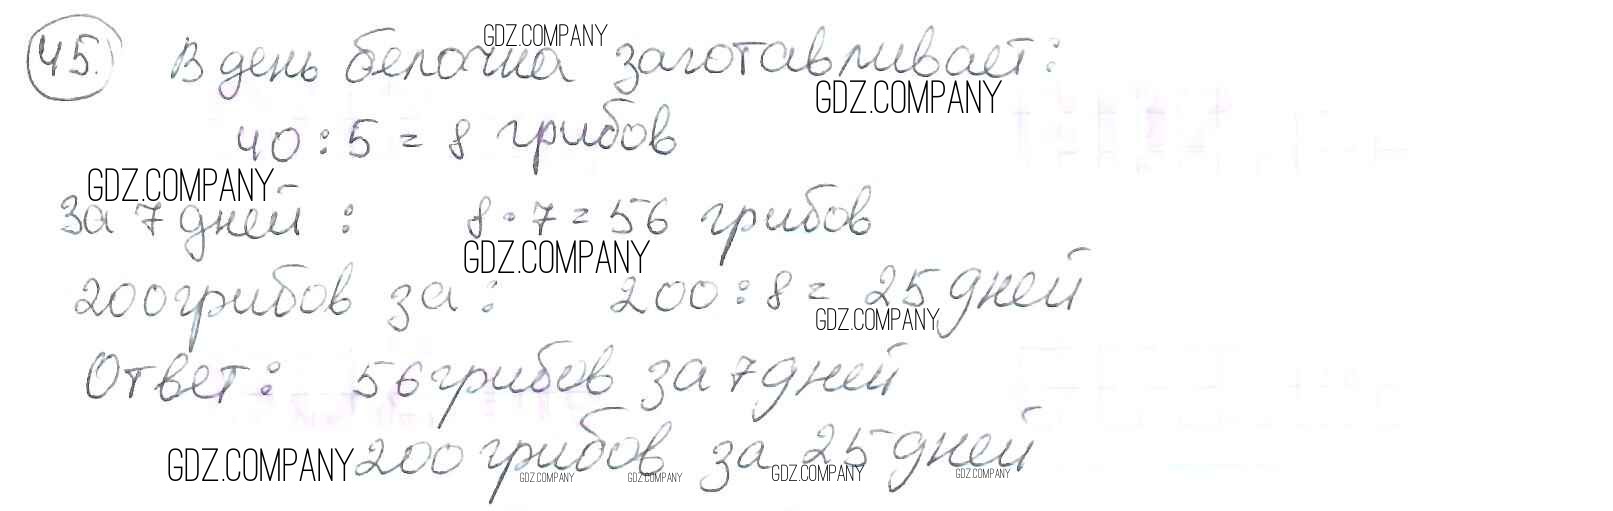 45. В день белочка заготавливает:
40 : 5 = 8 грибов
За 7 дней : 8 · 7 = 56 грибов
200 грибов за : 200 : 8 = 25 дней
Ответ: 56 грибов за 7 дней
200 грибов за 25 дней
GDZ.COMPANY
GDZ.COMPANY
GDZ.COMPANY
GDZ.COMPANY
GDZ.COMPANY
GDZ.COMPANY
GDZ.COMPANY
GDZ.COMPANY
GDZ.COMPANY
GDZ.COMPANY